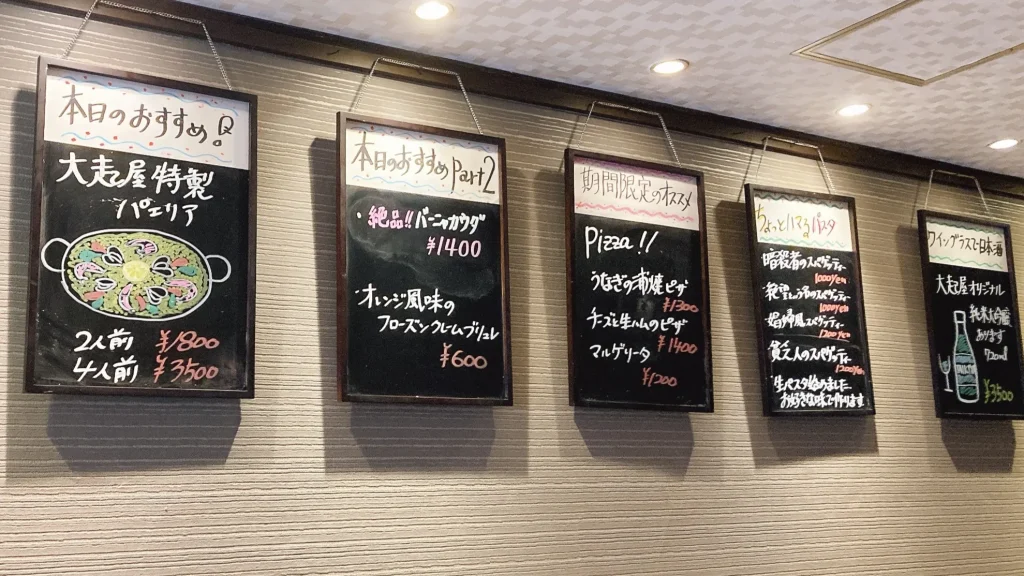 本日のおすすめ。
大走屋特製
パエリア
2人前 ¥1800
4人前 ¥3500
本日のおすすめPart2
・絶品!!バーニャカウダ
¥1400
・オレンジ風味の
フローズンクレームブリュレ
¥600
期間限定のオススメ
Pizza!!
うなぎの蒲焼ピザ
¥1300
チーズと生ハムのピザ
¥1400
マルゲリータ
¥1200
ちょっとハマるパスタ
暗殺者のスパゲッティー
1000yen
絶望のスパゲッティー
1000yen
娼婦風スパゲッティー
1200yen
貧乏人のスパゲッティー
1200yen
生パスタ始めました
お好きな味で作ります
ワイングラスで日本酒
大走屋オリジナル
純米大吟醸
あります
720ml
¥3500